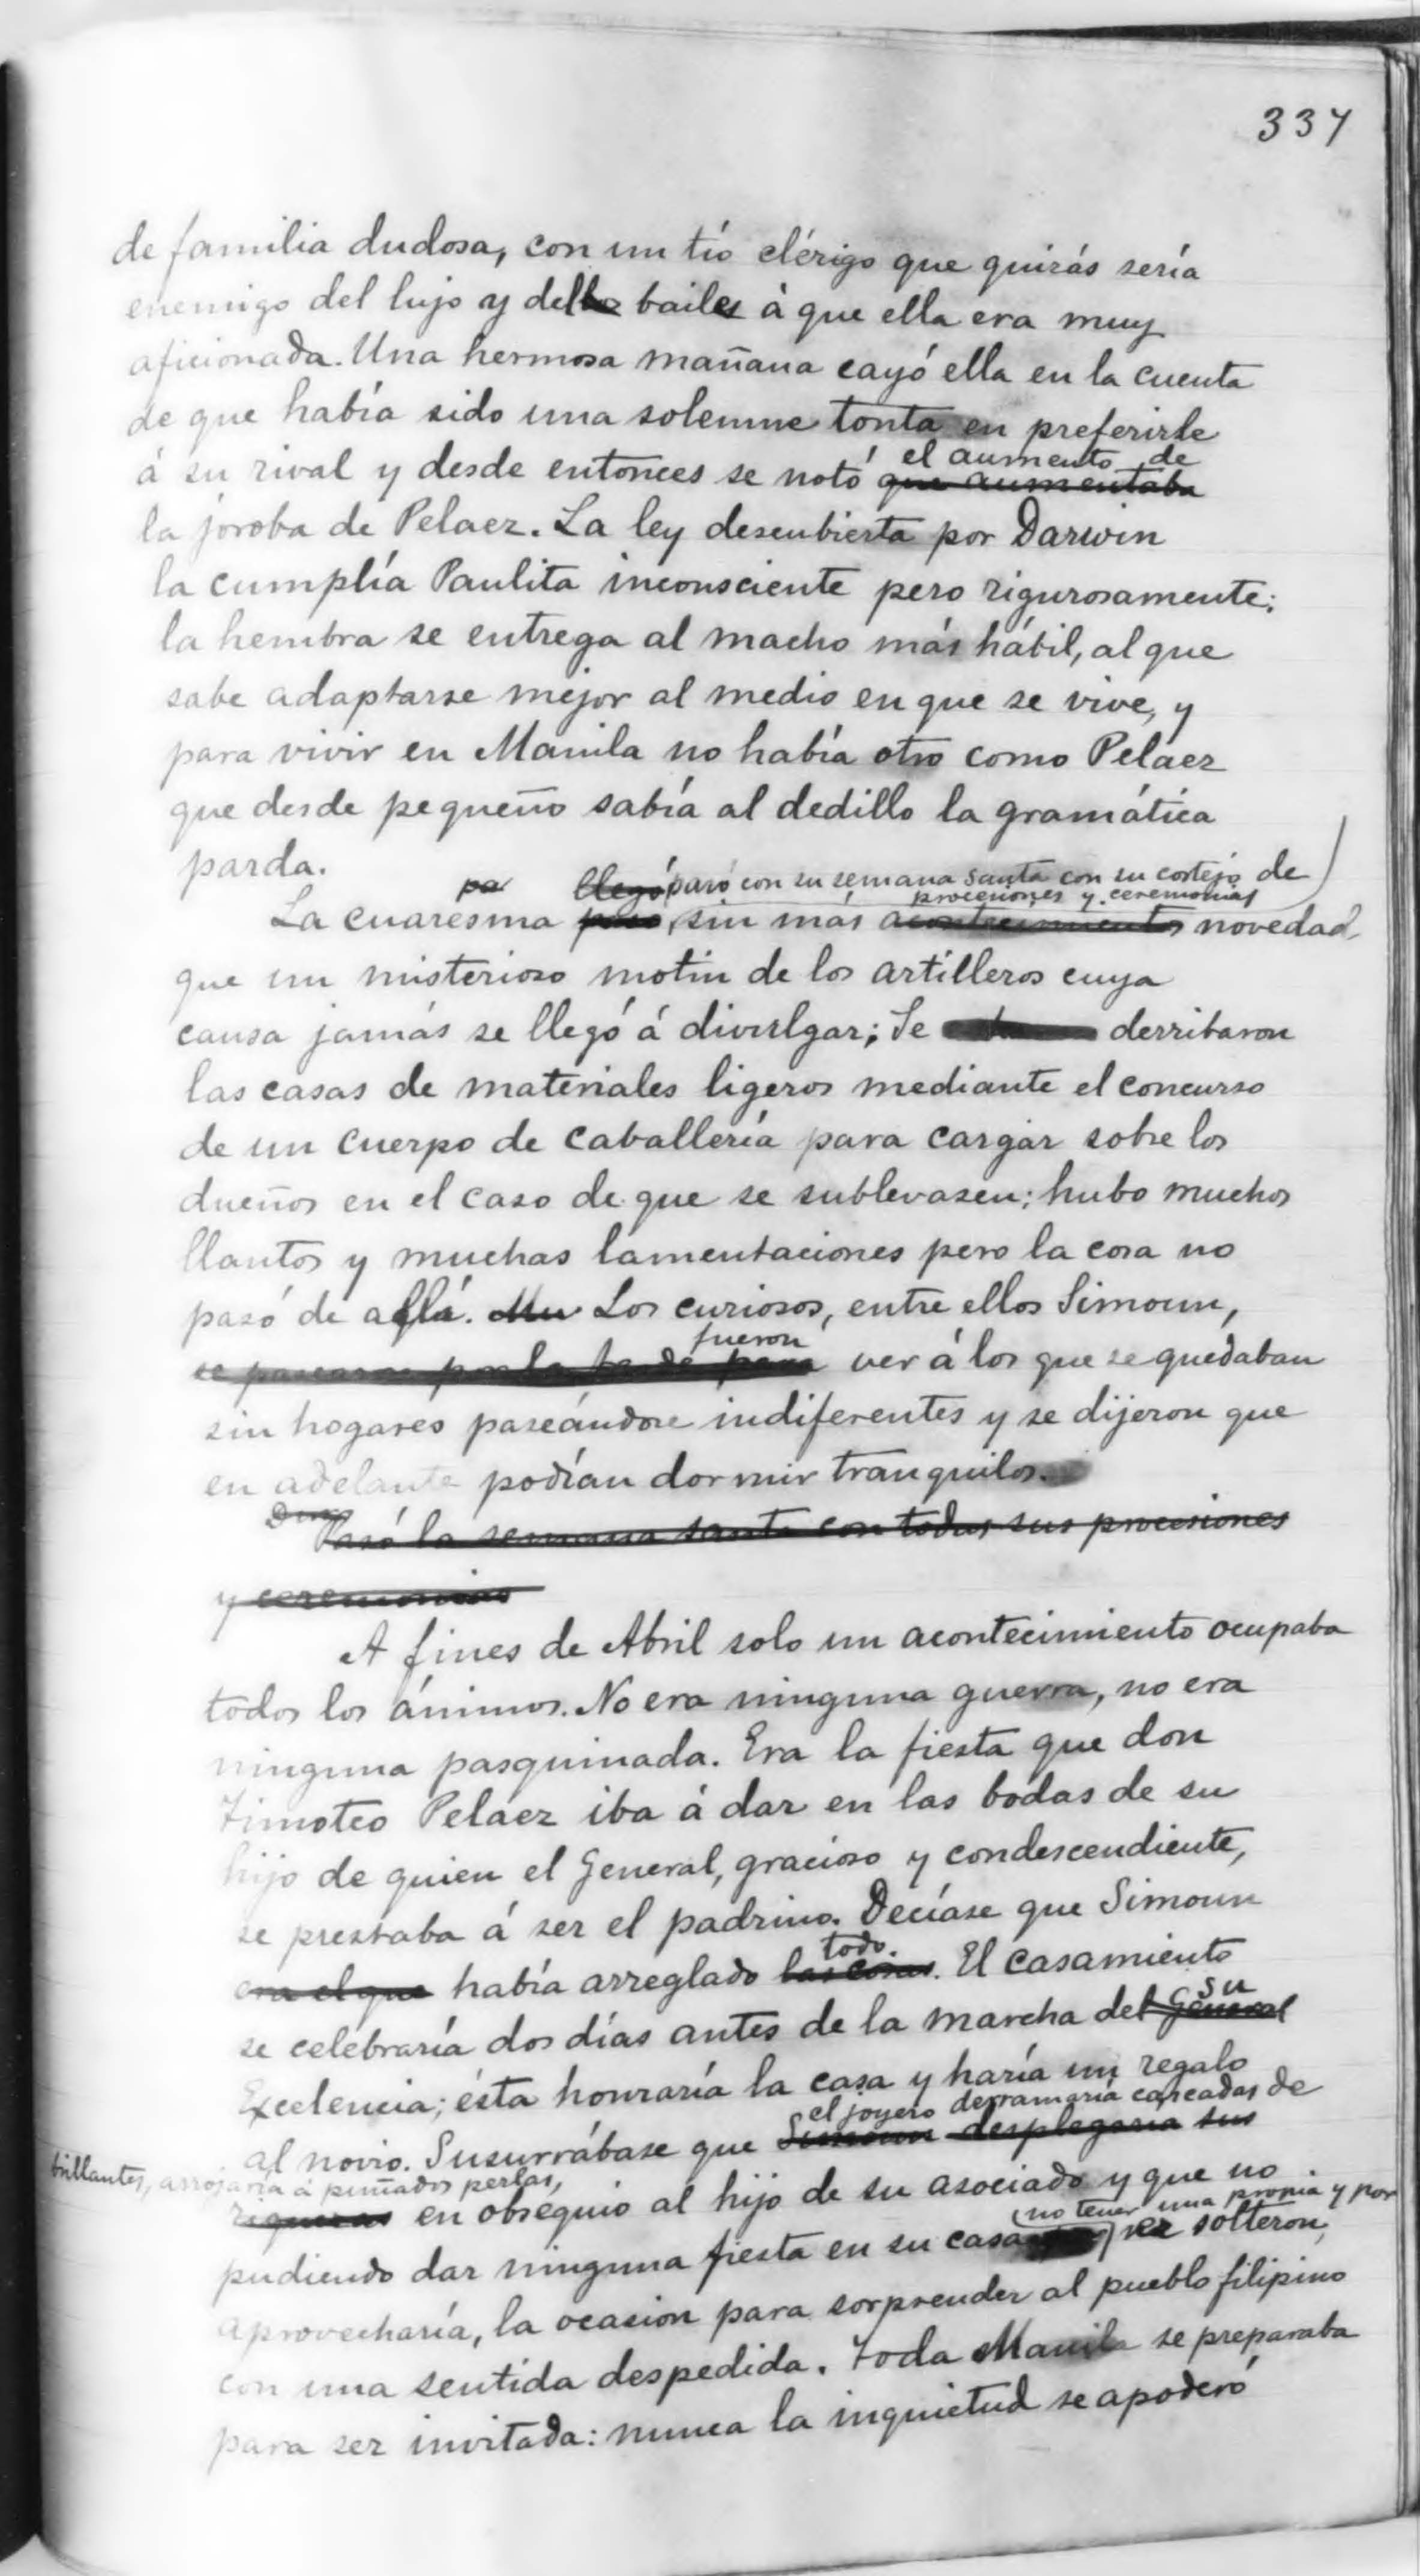 337
de familia dudosa, con un tío clérigo que quirás sería
enemigo del lujo y dellos bailes á que ella era muy
aficionada. Una hermosa mañana cayó ella en la cuenta
de que había sido una solemne tonta en preferirle
el aumento de
á su rival y desde entonces se notó que aumentaba
la joroba de Pelaez. La ley descubierta por Darwin
la cumplía Paulita inconsciente pero rigurosamente:
la hembra se entrega al macho más hábil, al que
sabe adaptarse mejor al medio en que se vive, y
para vivir en Manila no había otro como Pelaez
que desde pequeño sabía al dedillo la gramática
parda.
pa llegó pasó con su semana santa con su cortejo de
procesiones y ceremonias
La cuaresma pasó, sin más acontecimientos novedad
que un misterioso motin de los artilleros cuya
causa jamás se llegó á divulgar; Se derribaron
las casas de materiales ligeros mediante el concurso
de un cuerpo de caballería para cargar sobre los
dueños en el caso de que se sublevasen: hubo muchos
llantos y muchas lamentaciones pero la cosa no
pasó de allá. Mu Los curiosos, entre ellos Simoun,
fueron
se pasearon por la tarde para ver á los que se quedaban
sin hogares paseándose indiferentes y se dijeron que
en adelante podían dormir tranquilos.
Pasó la semana santa con todas sus procesiones
y ceremonias
A fines de Abril solo un acontecimiento ocupaba
todos los ánimos. No era ninguna guerra, no era
ninguna pasquinada. Era la fiesta que don
Timoteo Pelaez iba á dar en las bodas de su
hijo de quien el General, gracioso y condescendiente,
se prestaba á ser el padrino. Decíase que Simoun
todo.
era el que había arreglado las cosas. El casamiento
su
se celebraría dos días antes de la marcha del General
Excelencia; ésta honraría la casa y haría un regalo
el joyero derramaría cascadas de
al novio. Susurrábase que Simoun desplegaria sus
brillantes, arrojaría á puñados perlas,
riquezas en obsequio al hijo de su asociado y que no
no tener una propia y por
pudiendo dar ninguna fiesta en su casa ser solteron,
aprovecharía, la ocasion para sorprender al pueblo filipino
con una sentida despedida. Toda Manila se preparaba
para ser invitada: nunca la inquietud se apoderó